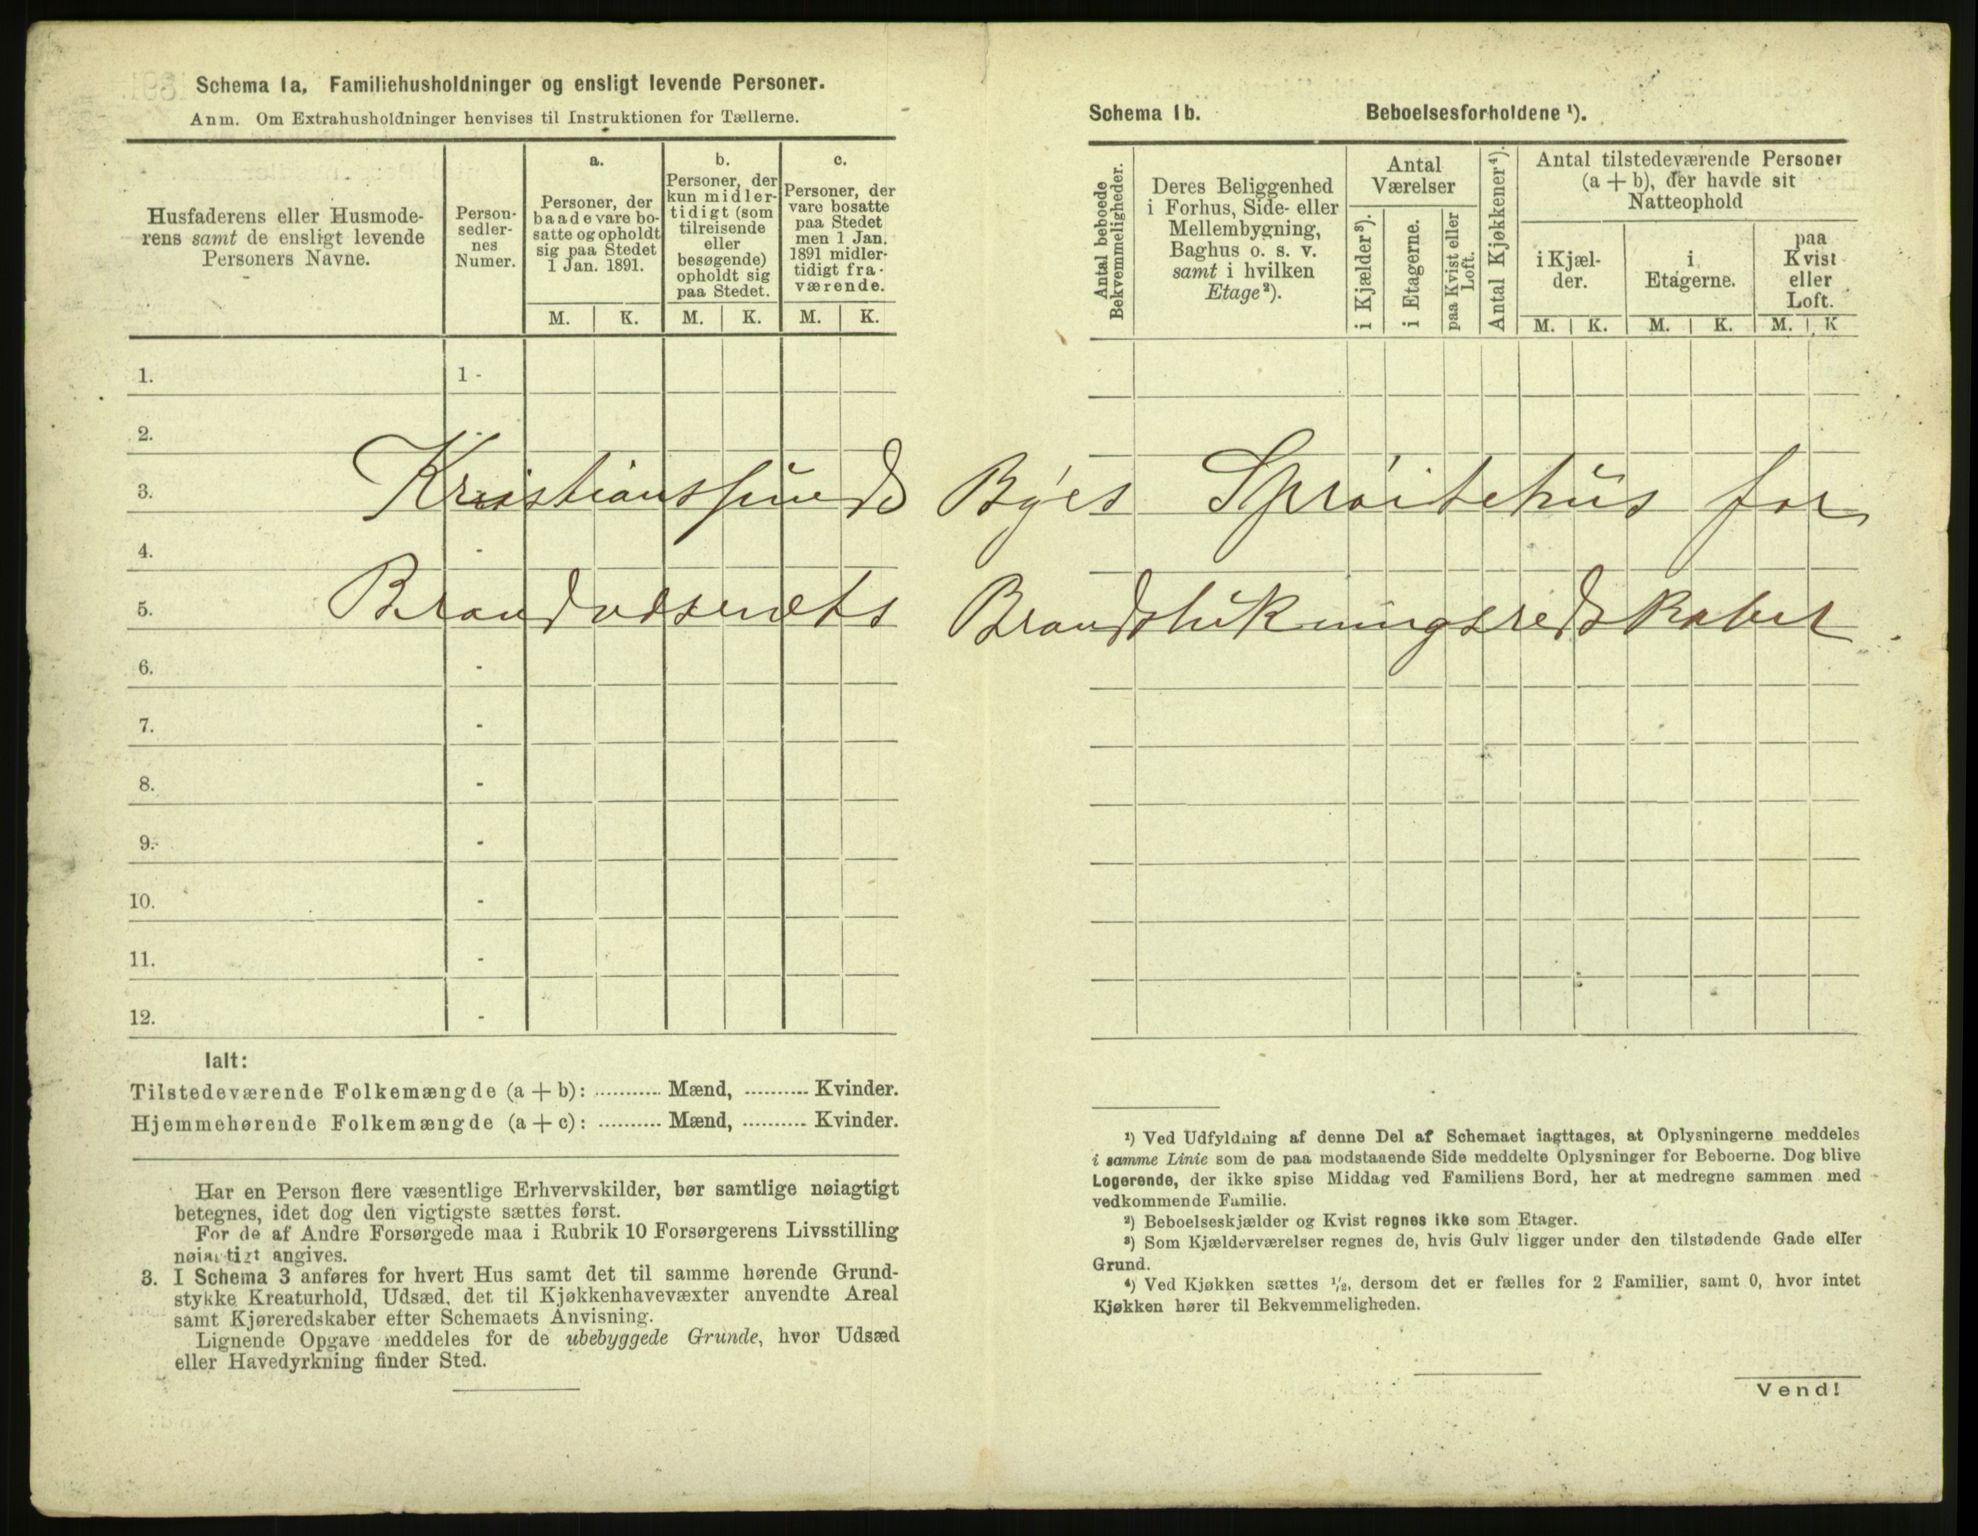 Schema 1a. Familiehusholdninger og ensligt levende Personer.
Anm. Om Extrahusholdninger henvises til Instruktionen for Tællerne.
Husfaderens eller Husmode-
rens samt de ensligt levende
Personers Navne.
Person-
sedler-
nes
Numer.
a.
Personer, der
baade vare bo-
satte og opholdt
sig paa Stedet
1 Jan. 1891.
b.
Personer, der
kun midler-
tidigt (som
tilreisende
eller
besøgende)
opholdt sig
paa Stedet.
c.
Personer, der
vare bosatte
paa Stedet
men 1 Jan.
1891 midler-
tidigt fra-
værende.
M. K. M. K. M. K.
1. 1 -
2. -
3.
4. -
5.
6. -
7. -
8. -
9. -
10. -
11. -
12. -
Kristianssunds Byes Sprøitehus for
Brandvæsenets Brandslukningsredskaber.
Ialt:
Tilstedeværende Folkemængde (a + b): .......... Mænd, .......... Kvinder.
Hjemmehørende Folkemængde (a + c): .......... Mænd, .......... Kvinder.
Har en Person flere væsentlige Erhvervskilder, bør samtlige nøiagtigt
betegnes, idet dog den vigtigste sættes først.
For de af Andre Forsørgede maa i Rubrik 10 Forsørgerens Livsstilling
nøiagtigt angives.
3. I Schema 3 anføres for hvert Hus samt det til samme hørende Grund-
stykke Kreaturhold, Udsæd, det til Kjøkkenhavevæxter anvendte Areal
samt Kjøreredskaber efter Schemaets Anvisning.
Lignende Opgave meddeles for de ubebyggede Grunde, hvor Udsæd
eller Havedyrkning finder Sted.
Schema 1b. Beboelsesforholdene ¹).
Antal beboede
Bekvemmeligheder.
Deres Beliggenhed
i Forhus, Side- eller
Mellembygning,
Baghus o. s. v.
samt i hvilken
Etage²).
Antal
Værelser
i Kjælder³).
i Etagerne.
paa Kvist eller
Loft.
Antal Kjøkkener⁴).
Antal tilstedeværende Personer
(a + b), der havde sit
Natteophold
i Kjæl-
der.
i
Etagerne.
paa
Kvist
eller
Loft.
M. K. M. K. M. K
¹) Ved Udfyldning af denne Del af Schemaet iagttages, at Oplysningerne meddeles
i samme Linie som de paa modstaaende Side meddelte Oplysninger for Beboerne. Dog blive
Logerende, der ikke spise Middag ved Familiens Bord, her at medregne sammen med
vedkommende Familie.
²) Beboelseskjælder og Kvist regnes ikke som Etager.
³) Som Kjælderværelser regnes de, hvis Gulv ligger under den tilstødende Gade eller
Grund.
⁴) Ved Kjøkken sættes ¹/₂, dersom det er fælles for 2 Familier, samt 0, hvor intet
Kjøkken hører til Bekvemmeligheden.
Vend!